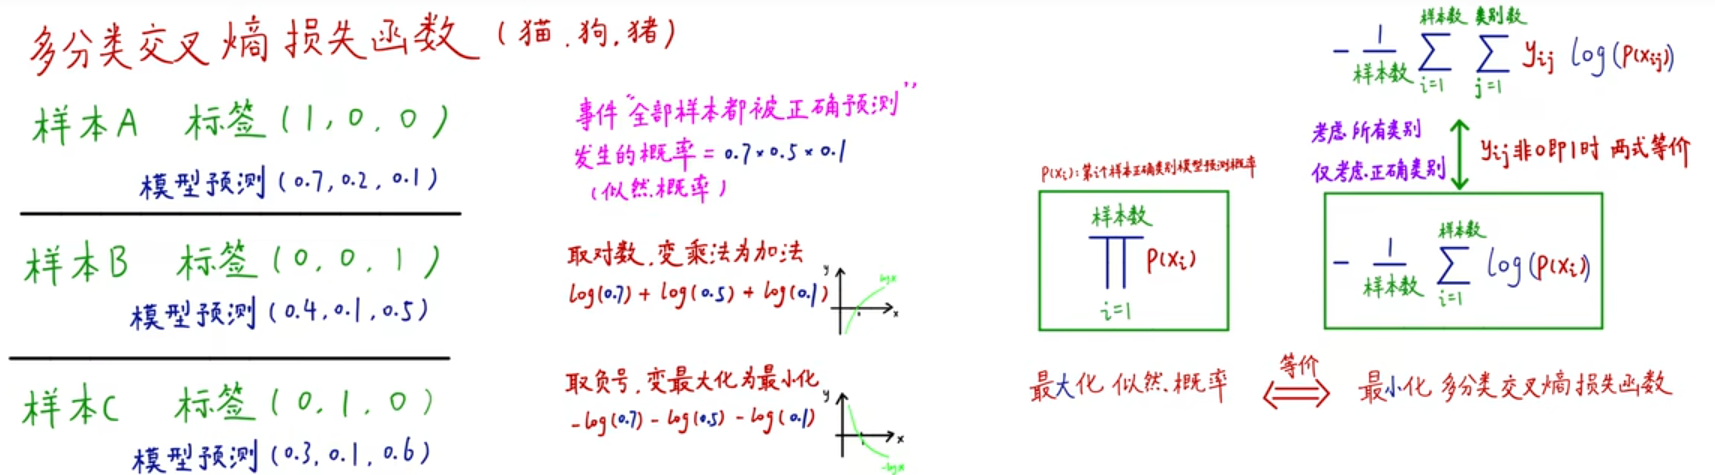 多分类交叉熵损失函数 (猫.狗.猪)
样本A 标签(1,0,0)
模型预测(0.7,0.2,0.1)
样本B 标签(0,0,1)
模型预测(0.4,0.1,0.5)
样本C 标签(0,1,0)
模型预测(0.3,0.1,0.6)
事件"全部样本都被正确预测"
发生的概率=0.7×0.5×0.1
(似然概率)
取对数,变乘法为加法
log(0.7)+log(0.5)+log(0.1)
y
logx
x
取负号,变最大化为最小化
-log(0.7)-log(0.5)-log(0.1)
y
x
-logx
P(xi):第i个样本正确类别模型预测概率
样本数
∏ P(xi)
i=1
最大化 似然概率
等价
⟺
样本数 类别数
- 1/样本数 ∑ ∑ yij log(P(xij))
i=1 j=1
考虑所有类别
仅考虑正确类别
yij非0即1时 两式等价
样本数
- 1/样本数 ∑ log(P(xi))
i=1
最小化 多分类交叉熵损失函数